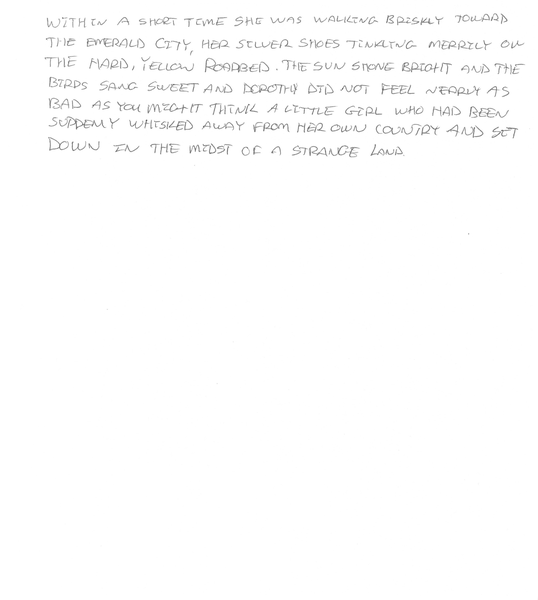 WITHIN A SHORT TIME SHE WAS WALKING BRISKLY TOWARD
THE EMERALD CITY, HER SILVER SHOES TINKLING MERRILY ON
THE HARD, YELLOW ROADBED. THE SUN SHONE BRIGHT AND THE
BIRDS SANG SWEET AND DOROTHY DID NOT FEEL NEARLY AS
BAD AS YOU MIGHT THINK A LITTLE GIRL WHO HAD BEEN
SUDDENLY WHISKED AWAY FROM HER OWN COUNTRY AND SET
DOWN IN THE MIDST OF A STRANGE LAND.